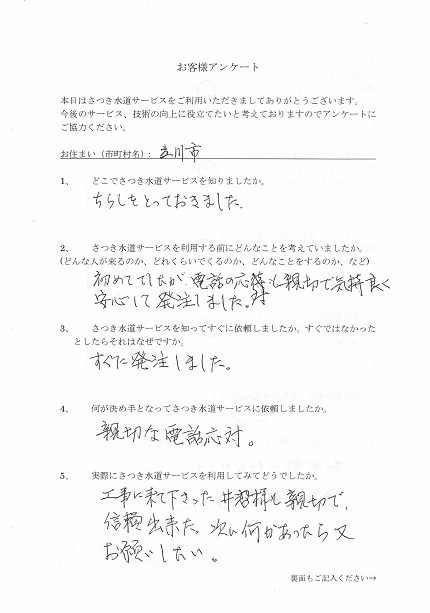 お客様アンケート
本日はさつき水道サービスをご利用いただきましてありがとうございます。
今後のサービス、技術の向上に役立てたいと考えておりますのでアンケートに
ご協力ください。
お住まい（市町村名）： 立川市
1、 どこでさつき水道サービスを知りましたか。
ちらしをとっておきました。
2、 さつき水道サービスを利用する前にどんなことを考えていましたか。
(どんな人が来るのか、どれくらいでくるのか、どんなことをするのか、など)
初めてでしたが、電話の応対も親切で気持良く
安心して発注しました。
3、 さつき水道サービスを知ってすぐに依頼しましたか。すぐではなかった
としたらそれはなぜですか。
すぐに発注しました。
4、 何が決め手となってさつき水道サービスに依頼しましたか。
親切な電話応対。
5、 実際にさつき水道サービスを利用してみてどうでしたか。
工事に来て下さった 様も親切で、
信頼出来た。次に何かあったら又
お願いしたい。
裏面もご記入ください→